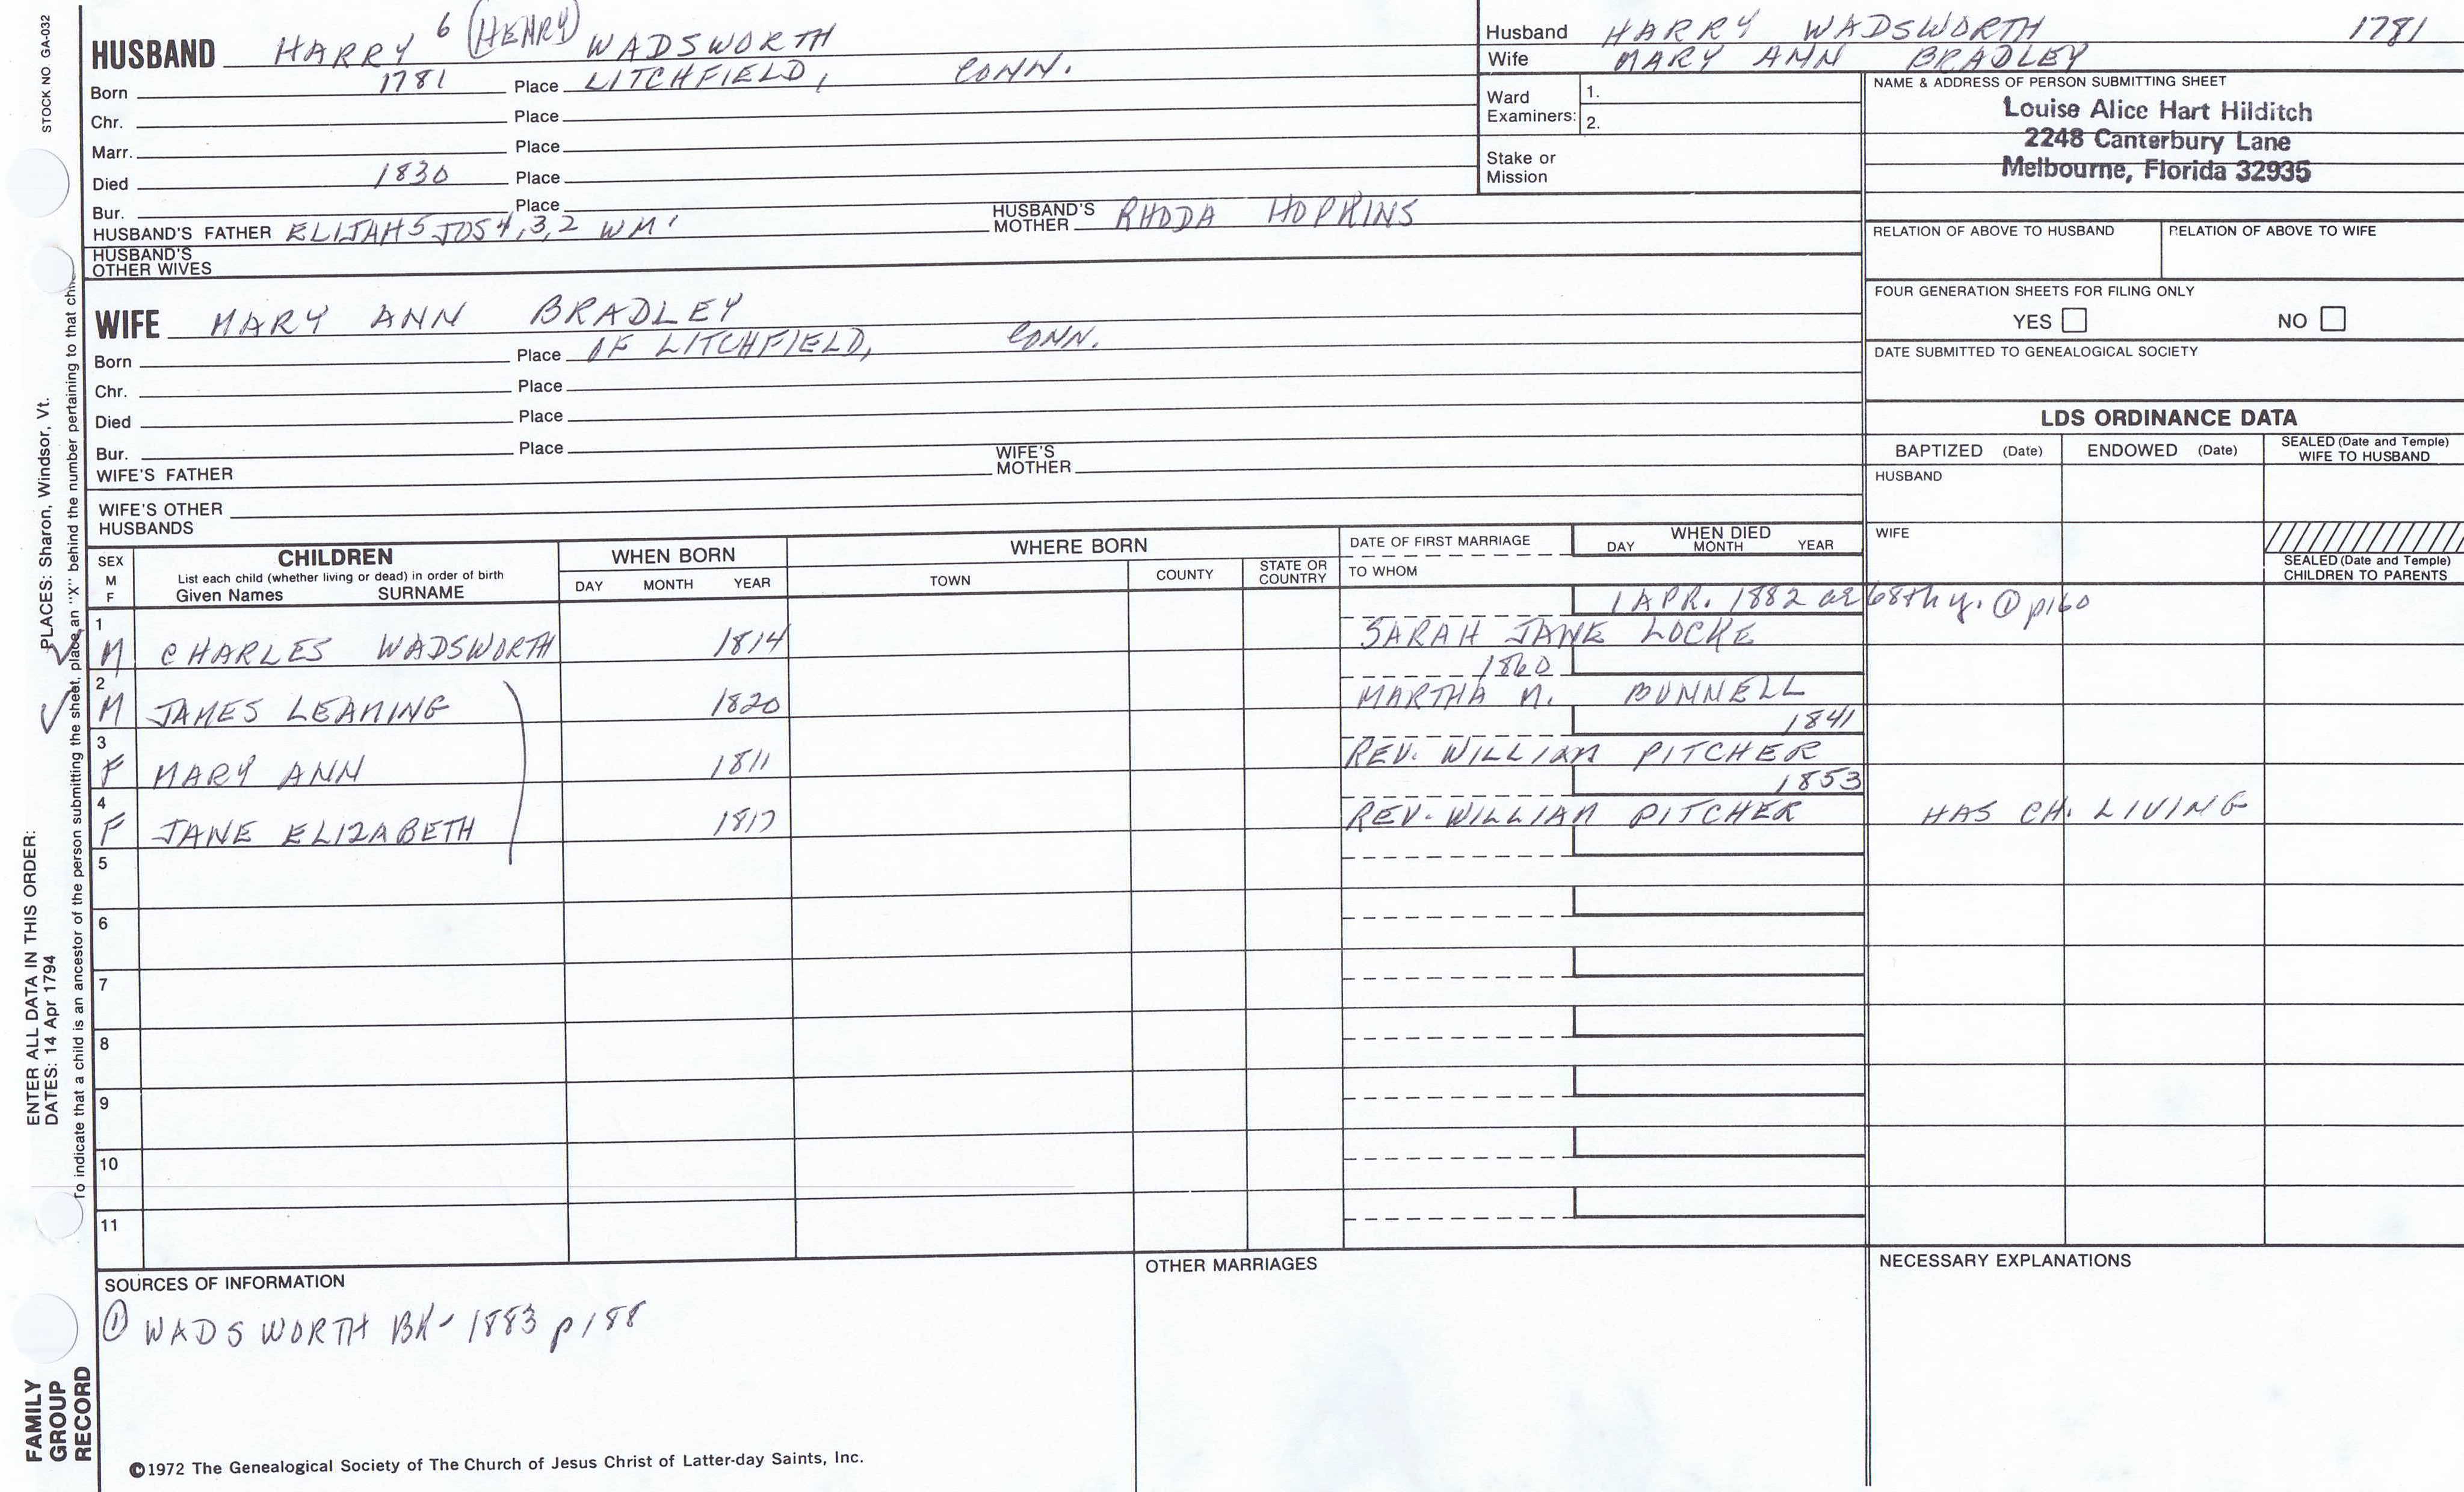 STOCK NO GA-032
HUSBAND HARRY 6 (HENRY) WADSWORTH
Born 1781 Place LITCHFIELD, CONN.
Chr. Place
Marr. Place
Died 1830 Place
Bur. Place
HUSBAND'S FATHER ELIJAH 5 JOS 4,3,2 WM 1 HUSBAND'S MOTHER RHODA HOPKINS
HUSBAND'S OTHER WIVES
WIFE MARY ANN BRADLEY
Born Place OF LITCHFIELD, CONN.
Chr. Place
Died Place
Bur. Place
WIFE'S FATHER WIFE'S MOTHER
WIFE'S OTHER HUSBANDS
Husband HARRY WADSWORTH 1781
Wife MARY ANN BRADLEY
Ward Examiners: 1.
2.
Stake or Mission
NAME & ADDRESS OF PERSON SUBMITTING SHEET
Louise Alice Hart Hilditch
2248 Canterbury Lane
Melbourne, Florida 32935
RELATION OF ABOVE TO HUSBAND RELATION OF ABOVE TO WIFE
FOUR GENERATION SHEETS FOR FILING ONLY
YES NO
DATE SUBMITTED TO GENEALOGICAL SOCIETY
LDS ORDINANCE DATA
BAPTIZED (Date) ENDOWED (Date) SEALED (Date and Temple) WIFE TO HUSBAND
HUSBAND
WIFE
SEALED (Date and Temple) CHILDREN TO PARENTS
SEX M F
CHILDREN
List each child (whether living or dead) in order of birth
Given Names SURNAME
WHEN BORN
DAY MONTH YEAR
WHERE BORN
TOWN COUNTY STATE OR COUNTRY
DATE OF FIRST MARRIAGE
TO WHOM
WHEN DIED
DAY MONTH YEAR
1 APR. 1882 ae 68th y. ① p160
1 M CHARLES WADSWORTH 1814 SARAH JANE LOCKE
1860
2 M JAMES LEAMING 1820 MARTHA M. BUNNELL
1841
3 F MARY ANN 1811 REV. WILLIAM PITCHER
1853
4 F JANE ELIZABETH 1817 REV. WILLIAM PITCHER HAS CH. LIVING
5
6
7
8
9
10
11
SOURCES OF INFORMATION
① WADSWORTH BK - 1883 p188
OTHER MARRIAGES
NECESSARY EXPLANATIONS
©1972 The Genealogical Society of The Church of Jesus Christ of Latter-day Saints, Inc.
FAMILY GROUP RECORD
ENTER ALL DATA IN THIS ORDER:
DATES: 14 Apr 1794
PLACES: Sharon, Windsor, Vt.
To indicate that a child is an ancestor of the person submitting the sheet, place an "X" behind the number pertaining to that